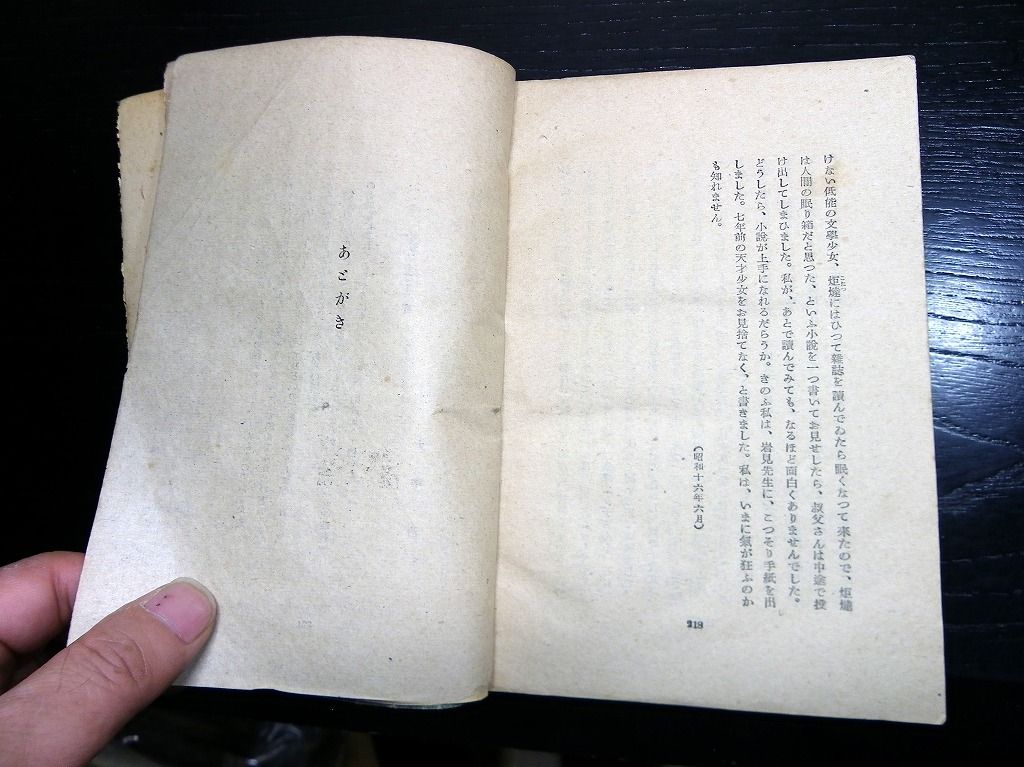 けない低能の文學少女、炬燵にはひつて雜誌を讀んでゐたら眠くなつて來たので、炬燵
は人間の眠り箱だと思つた、といふ小說を一つ書いてお見せしたら、叔父さんは中途で投
げ出してしまひました。私が、あとで讀んでみても、なるほど面白くありませんでした。
どうしたら、小說が上手になれるだらうか。きのふ私は、岩見先生に、こつそり手紙を出
しました。七年前の天才少女をお見捨てなく、と書きました。私は、いまに氣が狂ふのか
も知れません。
（昭和十六年六月）
218
あとがき